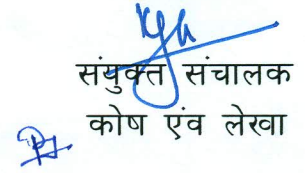 संयुक्त संचालक
कोष एंव लेखा